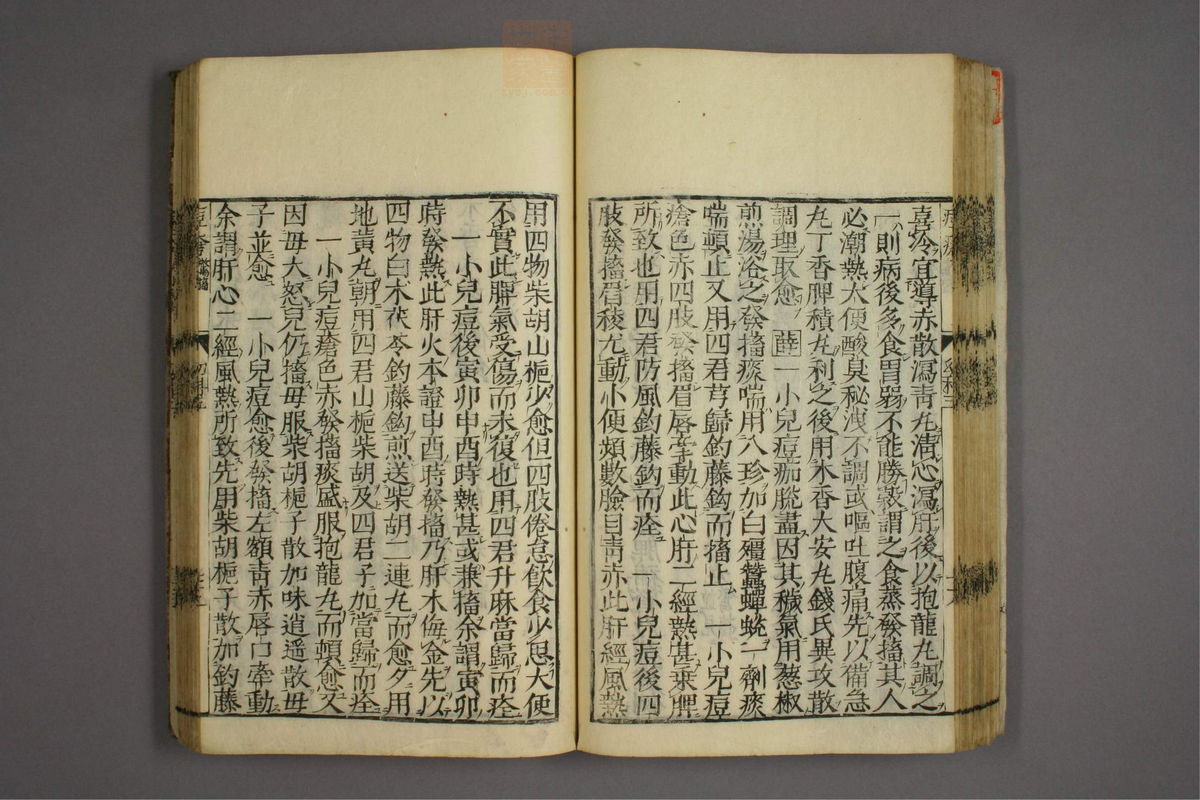 喜冷宜導赤散瀉青丸清心瀉肝後以抱龍丸調之
一則病後多食胃弱不能勝穀謂之食蒸發搐其人
必潮熱大便酸臭秘洩不調或嘔吐腹痛先以備急
丸丁香脾積丸利之後用木香大安丸錢氏異攻散
調理取愈 薛 一小兒痘痂脫盡因其穢氣用葱椒
煎湯浴之發搐痰喘用八珍加白殭蠶蟬蛻一劑痰
喘頓止又用四君芎歸釣藤鈎而搐止 一小兒痘
瘡色赤四肢發搐眉唇牽動此心肝二經熱甚乘脾
所致也用四君防風釣藤鈎而痊 一小兒痘後四
肢發搐眉稜尤動小便頻數臉目青赤此肝經風熱
用四物柴胡山梔少愈但四肢倦怠飲食少思大便
不實此脾氣受傷而未復也用四君升麻當歸而痊
一小兒痘後寅卯申酉時熱甚或兼搐余謂寅卯
時發熱此肝火本證申酉時發搐乃肝木侮金先以
四物白术茯苓釣藤鈎煎送柴胡二連丸而愈夕用
地黃丸朝用四君山梔柴胡及四君子加當歸而痊
一小兒痘瘡色赤發搐痰盛服抱龍丸而頓愈又
因毋大怒兒仍搐毋服柴胡梔子散加味逍遥散毋
子並愈 一小兒痘愈後發搐左額青赤唇口牽動
余謂肝心二經風熱所致先用柴胡梔子散加釣藤